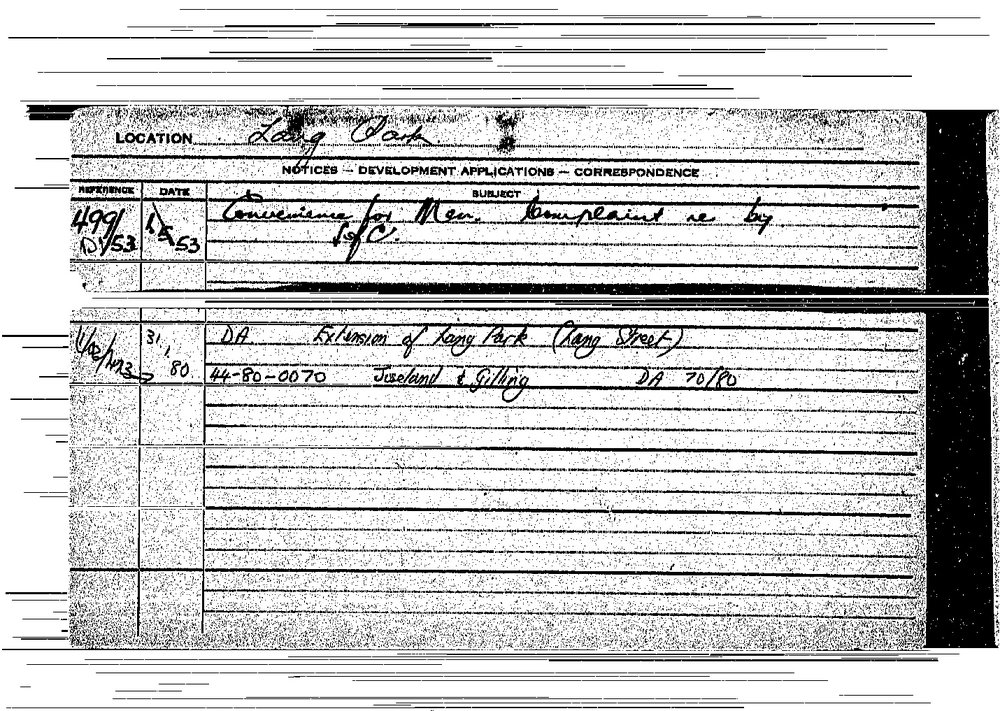 LOCATION Lang Park.
NOTICES — DEVELOPMENT APPLICATIONS — CORRESPONDENCE
REFERENCE DATE SUBJECT
499/ 1/5/53 Convenience for Men. Complaint re by
/53 I of C.
31/1/80 DA. Extension of Lang Park (Lang Street)
44-80-0070 Joseland & Gilling DA 70/80